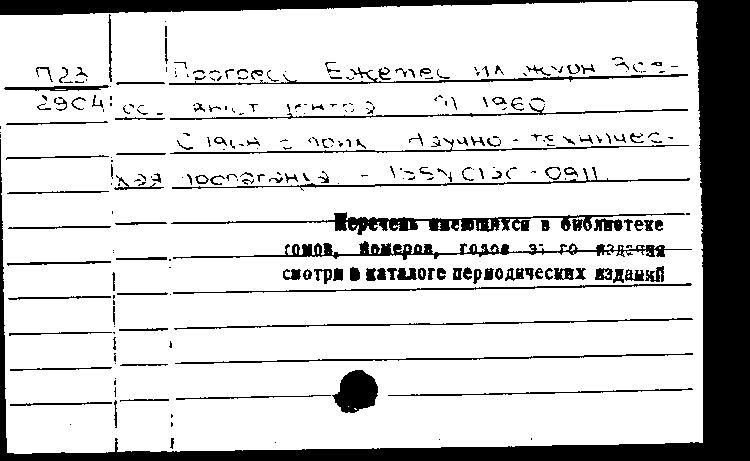 П23 Прогресс Ежемес ил журн Все-
2904 сс. 1960
С 1964 с прил Научно-техничес-
кая пропаганда - ISSN 0130-0911
Перечень имеющихся в библиотеке
томов, номеров, годов этого издания
смотри в каталоге периодических изданий